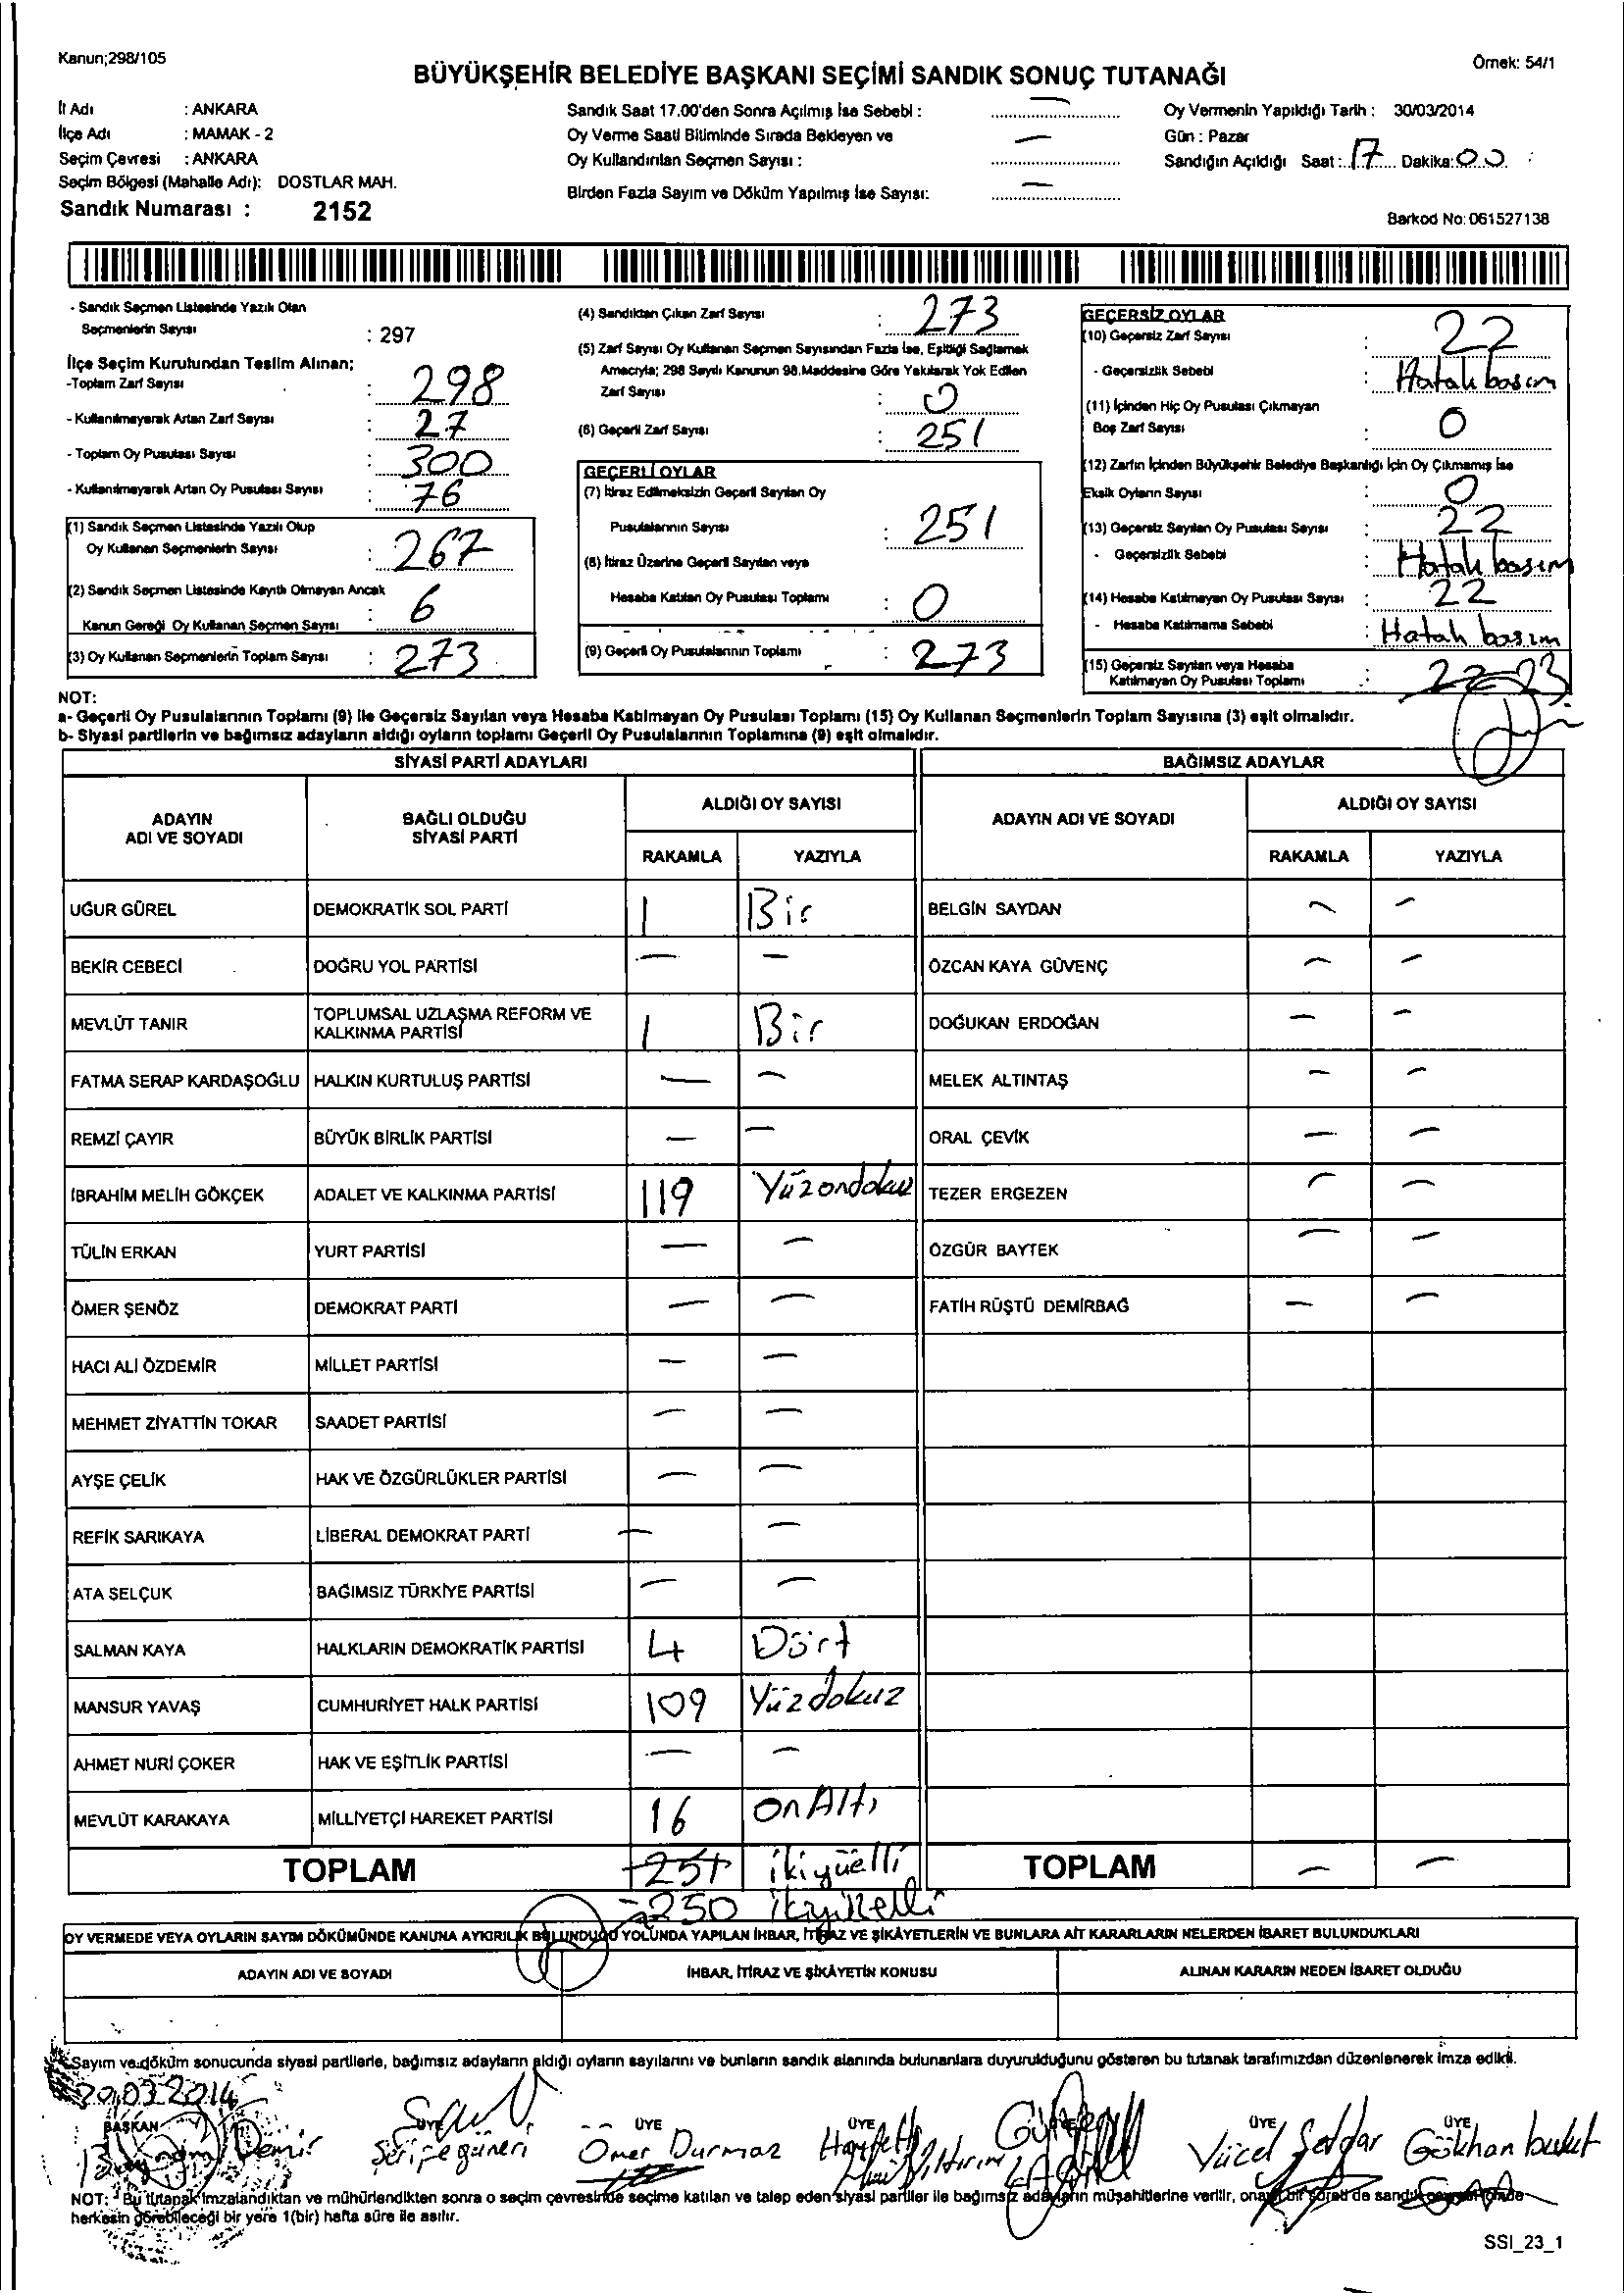 Kanun;298/105
Örnek: 54/1
BÜYÜKŞEHİR BELEDİYE BAŞKANI SEÇİMİ SANDIK SONUÇ TUTANAĞI
İl Adı : ANKARA
İlçe Adı : MAMAK - 2
Seçim Çevresi : ANKARA
Seçim Bölgesi (Mahalle Adı): DOSTLAR MAH.
Sandık Numarası : 2152
Sandık Saat 17.00'den Sonra Açılmış İse Sebebi : —
Oy Verme Saati Bitiminde Sırada Bekleyen ve
Oy Kullandırılan Seçmen Sayısı : —
Birden Fazla Sayım ve Döküm Yapılmış İse Sayısı: —
Oy Vermenin Yapıldığı Tarih : 30/03/2014
Gün : Pazar
Sandığın Açıldığı Saat: 17 Dakika: 00
Barkod No: 061527138
- Sandık Seçmen Listesinde Yazılı Olan
Seçmenlerin Sayısı : 297
İlçe Seçim Kurulundan Teslim Alınan;
-Toplam Zarf Sayısı : 298
- Kullanılmayarak Artan Zarf Sayısı : 27
- Toplam Oy Pusulası Sayısı : 300
- Kullanılmayarak Artan Oy Pusulası Sayısı : 76
(1) Sandık Seçmen Listesinde Yazılı Olup
Oy Kullanan Seçmenlerin Sayısı : 267
(2) Sandık Seçmen Listesinde Kayıtlı Olmayan Ancak
Kanun Gereği Oy Kullanan Seçmen Sayısı : 6
(3) Oy Kullanan Seçmenlerin Toplam Sayısı : 273
(4) Sandıktan Çıkan Zarf Sayısı : 273
(5) Zarf Sayısı Oy Kullanan Seçmen Sayısından Fazla İse, Eşitliği Sağlamak
Amacıyla; 298 Sayılı Kanunun 98.Maddesine Göre Yakılarak Yok Edilen
Zarf Sayısı : 0
(6) Geçerli Zarf Sayısı : 251
GEÇERLİ OYLAR
(7) İtiraz Edilmeksizin Geçerli Sayılan Oy
Pusulalarının Sayısı : 251
(8) İtiraz Üzerine Geçerli Sayılan veya
Hesaba Katılan Oy Pusulası Toplamı : 0
(9) Geçerli Oy Pusulalarının Toplamı : 273
GEÇERSİZ OYLAR
(10) Geçersiz Zarf Sayısı : 22
- Geçersizlik Sebebi : Hatalı basım
(11) İçinden Hiç Oy Pusulası Çıkmayan
Boş Zarf Sayısı : 0
(12) Zarfın İçinden Büyükşehir Belediye Başkanlığı İçin Oy Çıkmamış İse
Eksik Oyların Sayısı : 0
(13) Geçersiz Sayılan Oy Pusulası Sayısı : 22
- Geçersizlik Sebebi : Hatalı basım
(14) Hesaba Katılmayan Oy Pusulası Sayısı : 22
- Hesaba Katılmama Sebebi : Hatalı basım
(15) Geçersiz Sayılan veya Hesaba
Katılmayan Oy Pusulası Toplamı : 22 23
NOT:
a- Geçerli Oy Pusulalarının Toplamı (9) ile Geçersiz Sayılan veya Hesaba Katılmayan Oy Pusulası Toplamı (15) Oy Kullanan Seçmenlerin Toplam Sayısına (3) eşit olmalıdır.
b- Siyasi partilerin ve bağımsız adayların aldığı oyların toplamı Geçerli Oy Pusulalarının Toplamına (9) eşit olmalıdır.
SİYASİ PARTİ ADAYLARI BAĞIMSIZ ADAYLAR
ADAYIN ADI VE SOYADI BAĞLI OLDUĞU SİYASİ PARTİ ALDIĞI OY SAYISI ADAYIN ADI VE SOYADI ALDIĞI OY SAYISI
RAKAMLA YAZIYLA RAKAMLA YAZIYLA
UĞUR GÜREL DEMOKRATİK SOL PARTİ 1 Bir BELGİN SAYDAN — —
BEKİR CEBECİ DOĞRU YOL PARTİSİ — — ÖZCAN KAYA GÜVENÇ — —
MEVLÜT TANIR TOPLUMSAL UZLAŞMA REFORM VE KALKINMA PARTİSİ 1 Bir DOĞUKAN ERDOĞAN — —
FATMA SERAP KARDAŞOĞLU HALKIN KURTULUŞ PARTİSİ — — MELEK ALTINTAŞ — —
REMZİ ÇAYIR BÜYÜK BİRLİK PARTİSİ — — ORAL ÇEVİK — —
İBRAHİM MELİH GÖKÇEK ADALET VE KALKINMA PARTİSİ 119 Yüzondokuz TEZER ERGEZEN — —
TÜLİN ERKAN YURT PARTİSİ — — ÖZGÜR BAYTEK — —
ÖMER ŞENÖZ DEMOKRAT PARTİ — — FATİH RÜŞTÜ DEMİRBAĞ — —
HACI ALİ ÖZDEMİR MİLLET PARTİSİ — —
MEHMET ZİYATTİN TOKAR SAADET PARTİSİ — —
AYŞE ÇELİK HAK VE ÖZGÜRLÜKLER PARTİSİ — —
REFİK SARIKAYA LİBERAL DEMOKRAT PARTİ — —
ATA SELÇUK BAĞIMSIZ TÜRKİYE PARTİSİ — —
SALMAN KAYA HALKLARIN DEMOKRATİK PARTİSİ 4 Dört
MANSUR YAVAŞ CUMHURİYET HALK PARTİSİ 109 Yüzdokuz
AHMET NURİ ÇOKER HAK VE EŞİTLİK PARTİSİ — —
MEVLÜT KARAKAYA MİLLİYETÇİ HAREKET PARTİSİ 16 OnAltı
TOPLAM 251 ikiyüelli TOPLAM — —
250 ikiyüzelli
OY VERMEDE VEYA OYLARIN SAYIM DÖKÜMÜNDE KANUNA AYKIRILIK BULUNDUĞU YOLUNDA YAPILAN İHBAR, İTİRAZ VE ŞİKÂYETLERİN VE BUNLARA AİT KARARLARIN NELERDEN İBARET BULUNDUKLARI
ADAYIN ADI VE SOYADI İHBAR, İTİRAZ VE ŞİKÂYETİN KONUSU ALINAN KARARIN NEDEN İBARET OLDUĞU
Sayım ve döküm sonucunda siyasi partilerle, bağımsız adayların aldığı oyların sayılarını ve bunların sandık alanında bulunanlara duyurulduğunu gösteren bu tutanak tarafımızdan düzenlenerek imza edildi.
BAŞKAN ÜYE ÜYE ÜYE ÜYE ÜYE ÜYE
Demir Şerife güneri Ömer Durmaz Yücel Gökhan bulut
NOT: Bu tutanak imzalandıktan ve mühürlendikten sonra o seçim çevresinde seçime katılan ve talep eden siyasi partiler ile bağımsız adayların müşahitlerine verilir, onaylı bir sureti de sandık
herkesin görebileceği bir yere 1(bir) hafta süre ile asılır.
SSI_23_1